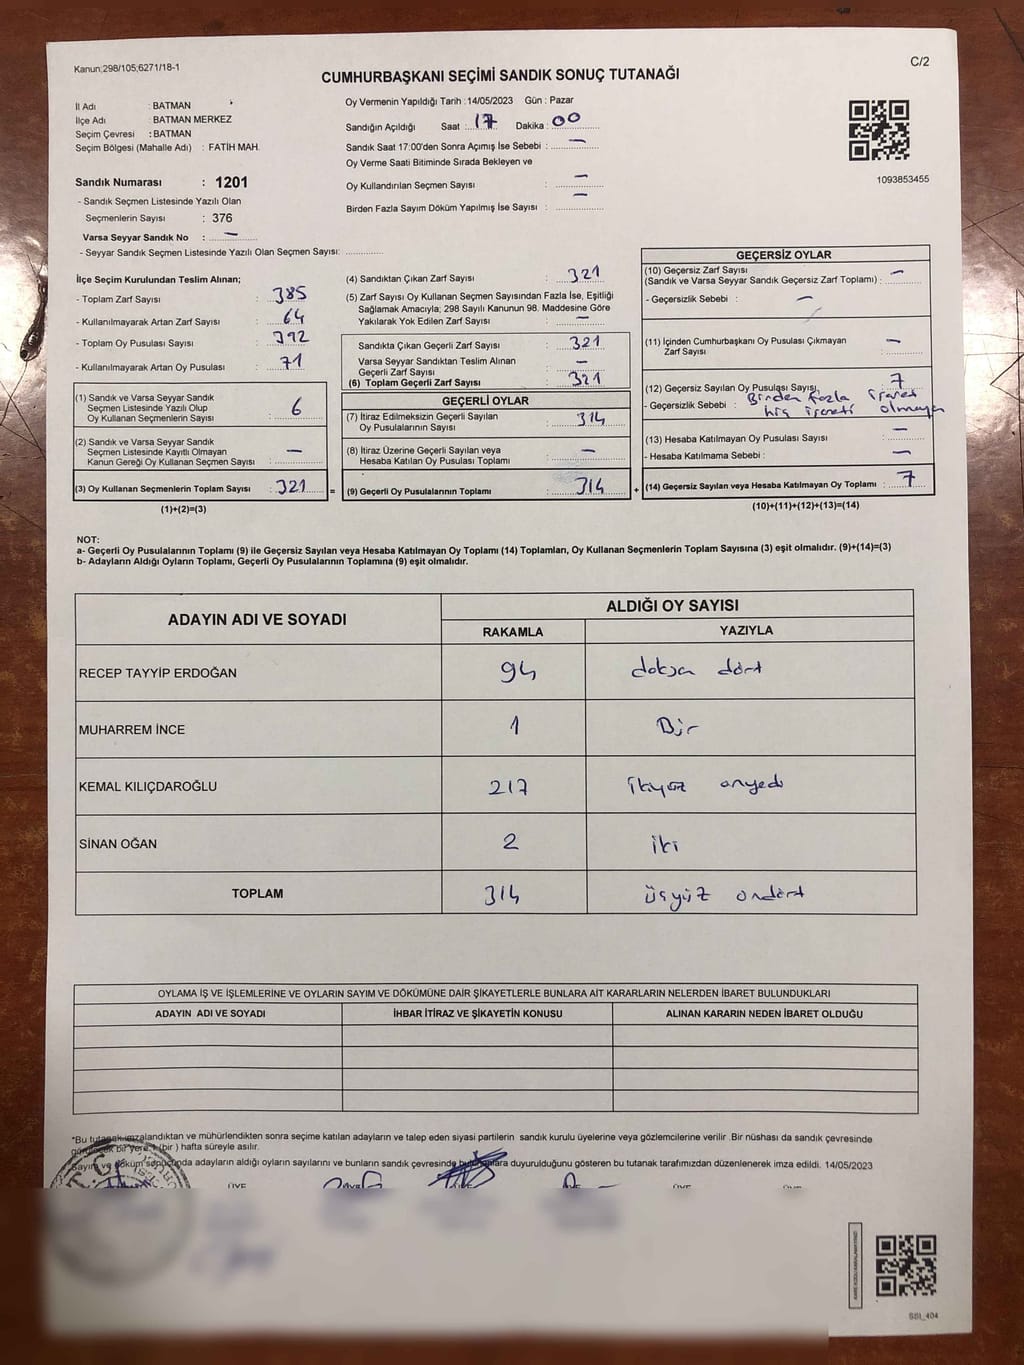 Kanun;298/105;6271/18-1
C/2
CUMHURBAŞKANI SEÇİMİ SANDIK SONUÇ TUTANAĞI
İl Adı : BATMAN
İlçe Adı : BATMAN MERKEZ
Seçim Çevresi : BATMAN
Seçim Bölgesi (Mahalle Adı) : FATİH MAH.
Sandık Numarası : 1201
- Sandık Seçmen Listesinde Yazılı Olan
Seçmenlerin Sayısı : 376
Varsa Seyyar Sandık No : —
- Seyyar Sandık Seçmen Listesinde Yazılı Olan Seçmen Sayısı: ..............
Oy Vermenin Yapıldığı Tarih :14/05/2023 Gün : Pazar
Sandığın Açıldığı Saat : 17 Dakika : 00
Sandık Saat 17:00'den Sonra Açımış İse Sebebi : —
Oy Verme Saati Bitiminde Sırada Bekleyen ve
Oy Kullandırılan Seçmen Sayısı : —
Birden Fazla Sayım Döküm Yapılmış İse Sayısı : —
1093853455
İlçe Seçim Kurulundan Teslim Alınan;
- Toplam Zarf Sayısı : 385
- Kullanılmayarak Artan Zarf Sayısı : 64
- Toplam Oy Pusulası Sayısı : 392
- Kullanılmayarak Artan Oy Pusulası : 71
(1) Sandık ve Varsa Seyyar Sandık
Seçmen Listesinde Yazılı Olup
Oy Kullanan Seçmenlerin Sayısı : 6
(2) Sandık ve Varsa Seyyar Sandık
Seçmen Listesinde Kayıtlı Olmayan
Kanun Gereği Oy Kullanan Seçmen Sayısı : —
(3) Oy Kullanan Seçmenlerin Toplam Sayısı : 321 =
(1)+(2)=(3)
(4) Sandıktan Çıkan Zarf Sayısı : 321
(5) Zarf Sayısı Oy Kullanan Seçmen Sayısından Fazla İse, Eşitliği
Sağlamak Amacıyla; 298 Sayılı Kanunun 98. Maddesine Göre
Yakılarak Yok Edilen Zarf Sayısı : —
Sandıkta Çıkan Geçerli Zarf Sayısı : 321
Varsa Seyyar Sandıktan Teslim Alınan
Geçerli Zarf Sayısı : —
(6) Toplam Geçerli Zarf Sayısı : 321
GEÇERLİ OYLAR
(7) İtiraz Edilmeksizin Geçerli Sayılan
Oy Pusulalarının Sayısı : 314
(8) İtiraz Üzerine Geçerli Sayılan veya
Hesaba Katılan Oy Pusulası Toplamı : —
(9) Geçerli Oy Pusulalarının Toplamı : 314 +
GEÇERSİZ OYLAR
(10) Geçersiz Zarf Sayısı
(Sandık ve Varsa Seyyar Sandık Geçersiz Zarf Toplamı) : —
- Geçersizlik Sebebi : —
(11) İçinden Cumhurbaşkanı Oy Pusulası Çıkmayan
Zarf Sayısı : —
(12) Geçersiz Sayılan Oy Pusulası Sayısı : 7
- Geçersizlik Sebebi : Birden fazla işaret
hiç işareti olmayan
(13) Hesaba Katılmayan Oy Pusulası Sayısı : —
- Hesaba Katılmama Sebebi : —
(14) Geçersiz Sayılan veya Hesaba Katılmayan Oy Toplamı : 7
(10)+(11)+(12)+(13)=(14)
NOT:
a- Geçerli Oy Pusulalarının Toplamı (9) ile Geçersiz Sayılan veya Hesaba Katılmayan Oy Toplamı (14) Toplamları, Oy Kullanan Seçmenlerin Toplam Sayısına (3) eşit olmalıdır. (9)+(14)=(3)
b- Adayların Aldığı Oyların Toplamı, Geçerli Oy Pusulalarının Toplamına (9) eşit olmalıdır.
ADAYIN ADI VE SOYADI
ALDIĞI OY SAYISI
RAKAMLA YAZIYLA
RECEP TAYYİP ERDOĞAN 94 doksan dört
MUHARREM İNCE 1 Bir
KEMAL KILIÇDAROĞLU 217 ikiyüz onyedi
SİNAN OĞAN 2 iki
TOPLAM 314 üçyüz ondört
OYLAMA İŞ VE İŞLEMLERİNE VE OYLARIN SAYIM VE DÖKÜMÜNE DAİR ŞİKAYETLERLE BUNLARA AİT KARARLARIN NELERDEN İBARET BULUNDUKLARI
ADAYIN ADI VE SOYADI İHBAR İTİRAZ VE ŞİKAYETİN KONUSU ALINAN KARARIN NEDEN İBARET OLDUĞU
*Bu tutanak imzalandıktan ve mühürlendikten sonra seçime katılan adayların ve talep eden siyasi partilerin sandık kurulu üyelerine veya gözlemcilerine verilir .Bir nüshası da sandık çevresinde
görülecek bir yere 1 (bir ) hafta süreyle asılır.
Sayım ve döküm sonucunda adayların aldığı oyların sayılarını ve bunların sandık çevresinde bulunanlara duyurulduğunu gösteren bu tutanak tarafımızdan düzenlenerek imza edildi. 14/05/2023
ÜYE ÜYE ÜYE ÜYE
SSI_404